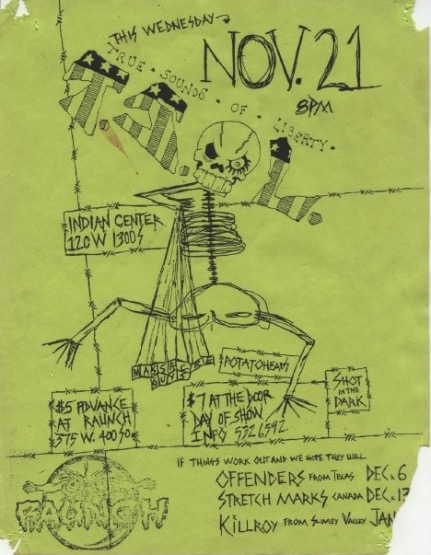 THIS WEDNESDAY
NOV. 21
8PM
TRUE · SOUNDS · OF · LIBERTY ·
T.S.O.L.
INDIAN CENTER
120 W 1300 S
MASSACRE
GUYS
POTATOHEADS
SHOT
IN THE
DARK
$5 ADVANCE
AT RAUNCH
375 W. 400 SO
$7 AT THE DOOR
DAY OF SHOW
INFO 532 6592
RAUNCH
IF THINGS WORK OUT AND WE HOPE THEY WILL
OFFENDERS FROM TEXAS DEC. 6
STRETCH MARKS CANADA DEC. 13
KILLROY FROM SUMEY VALLEY JAN